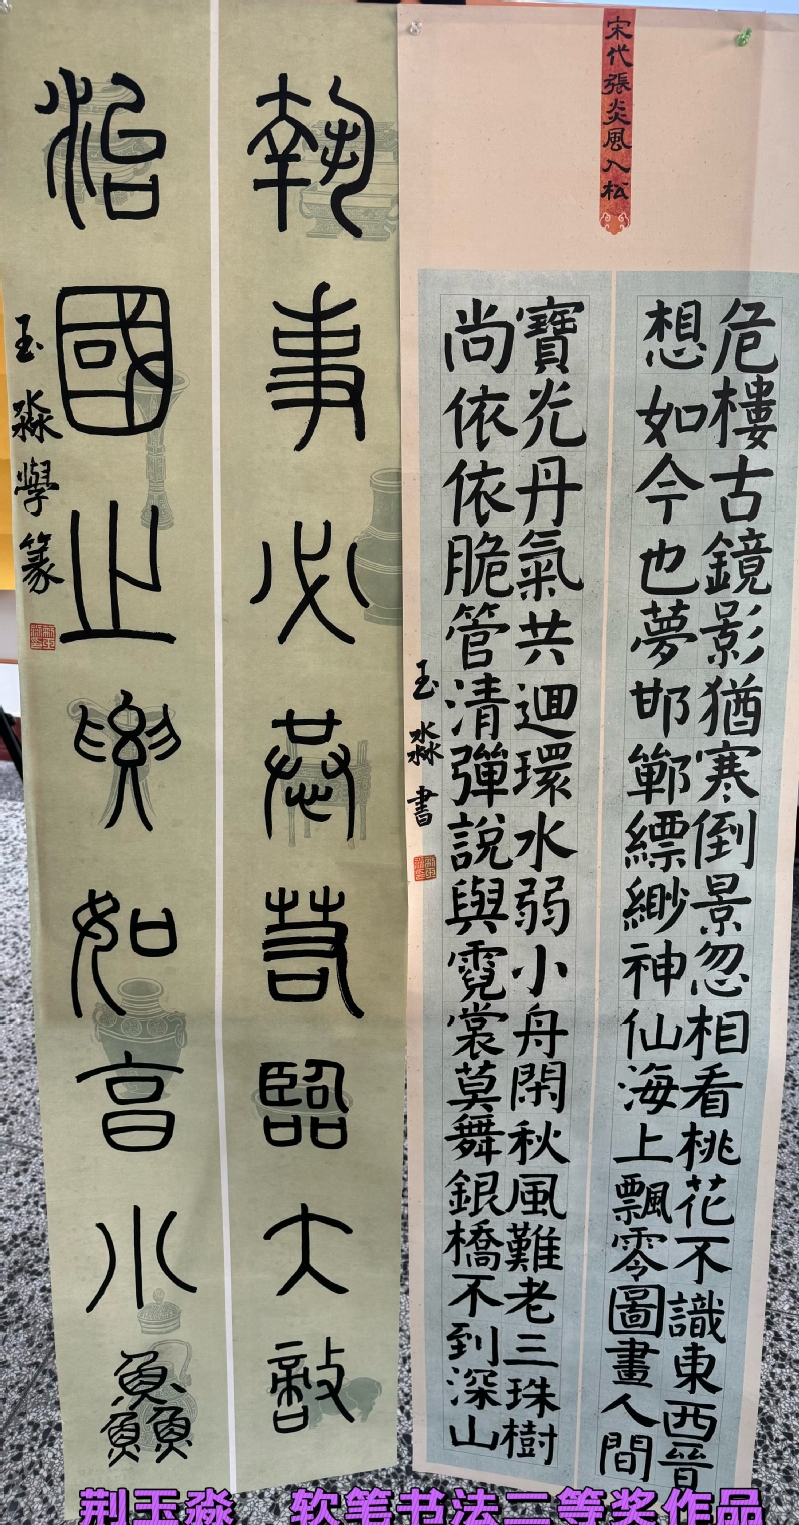 宋代張炎風入松
危樓古鏡影猶寒倒景忽相看桃花不識東西晉
想如今也夢邯鄲縹緲神仙海上飄零圖畫人間
寶光丹氣共迴環水弱小舟閑秋風難老三珠樹
尚依依脆管清彈說與霓裳莫舞銀橋不到深山
玉淼書
執事必恭若臨大敵
治國之如亯小鱻
玉淼學篆
荆玉淼 软笔书法二等奖作品